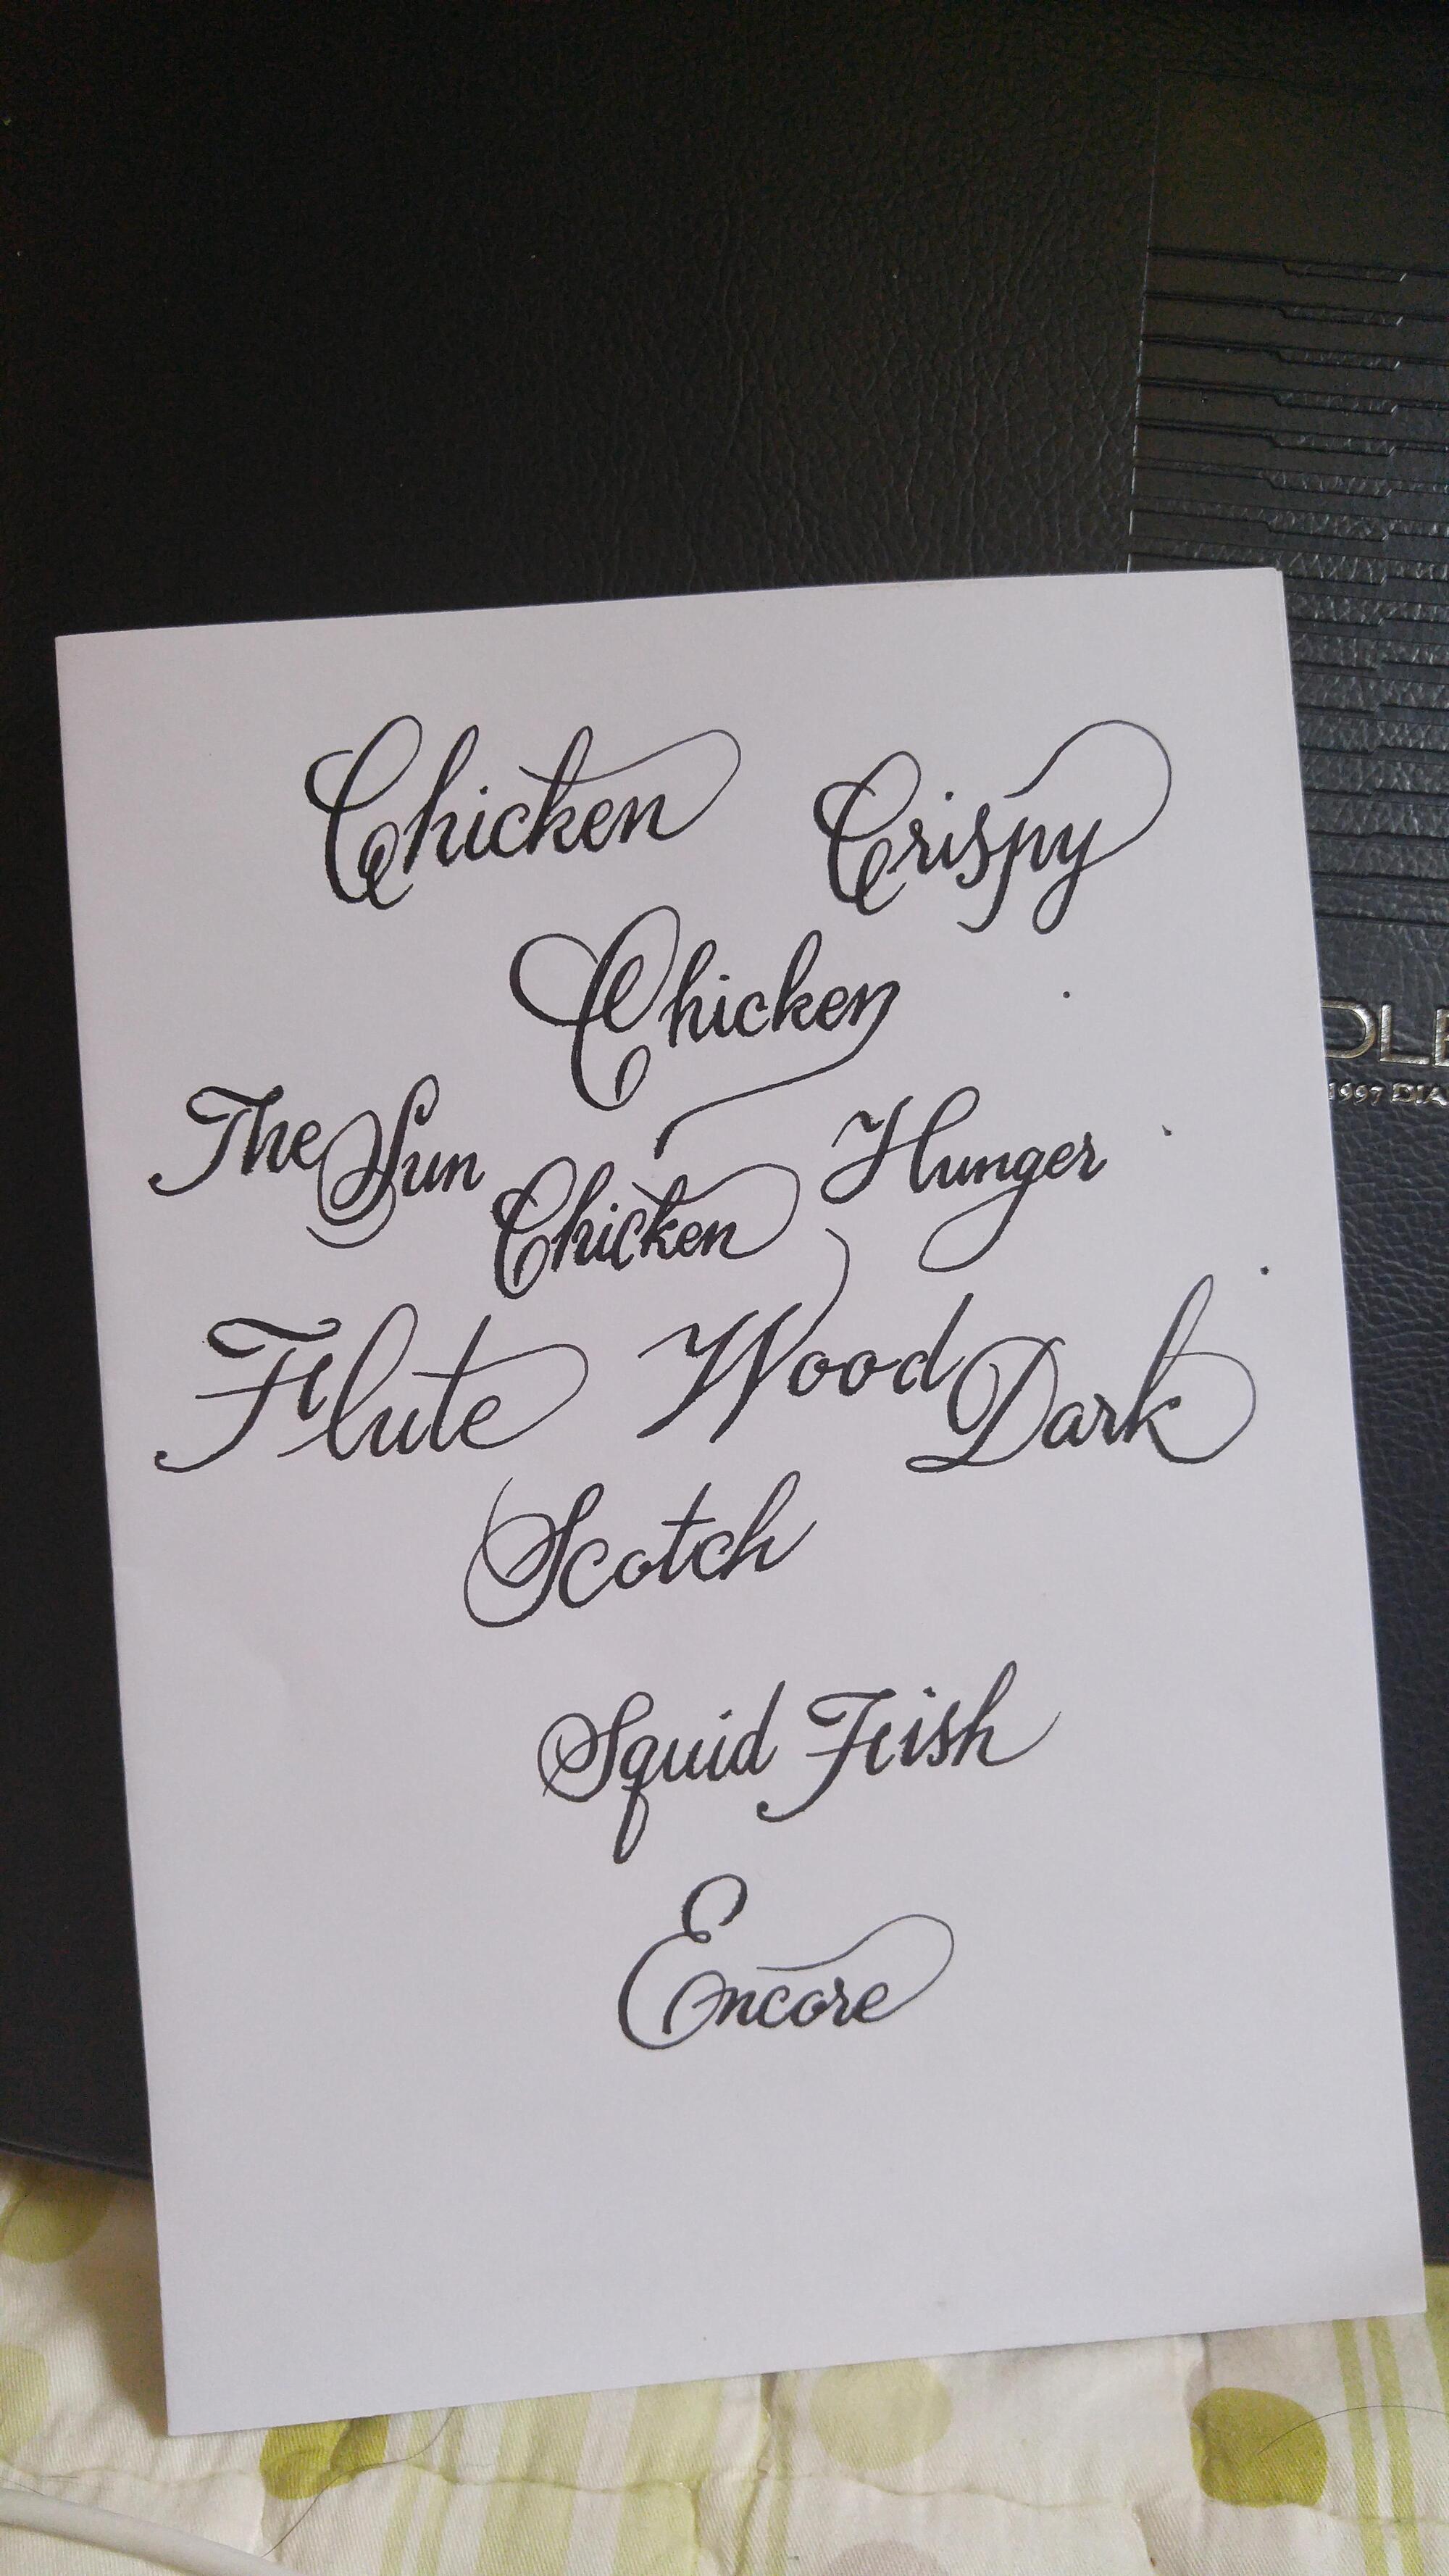 Chicken Crispy
Chicken
The Sun Hunger
Chicken
Flute Wood Dark
Scotch
Squid Fish
Encore
1997 DIA